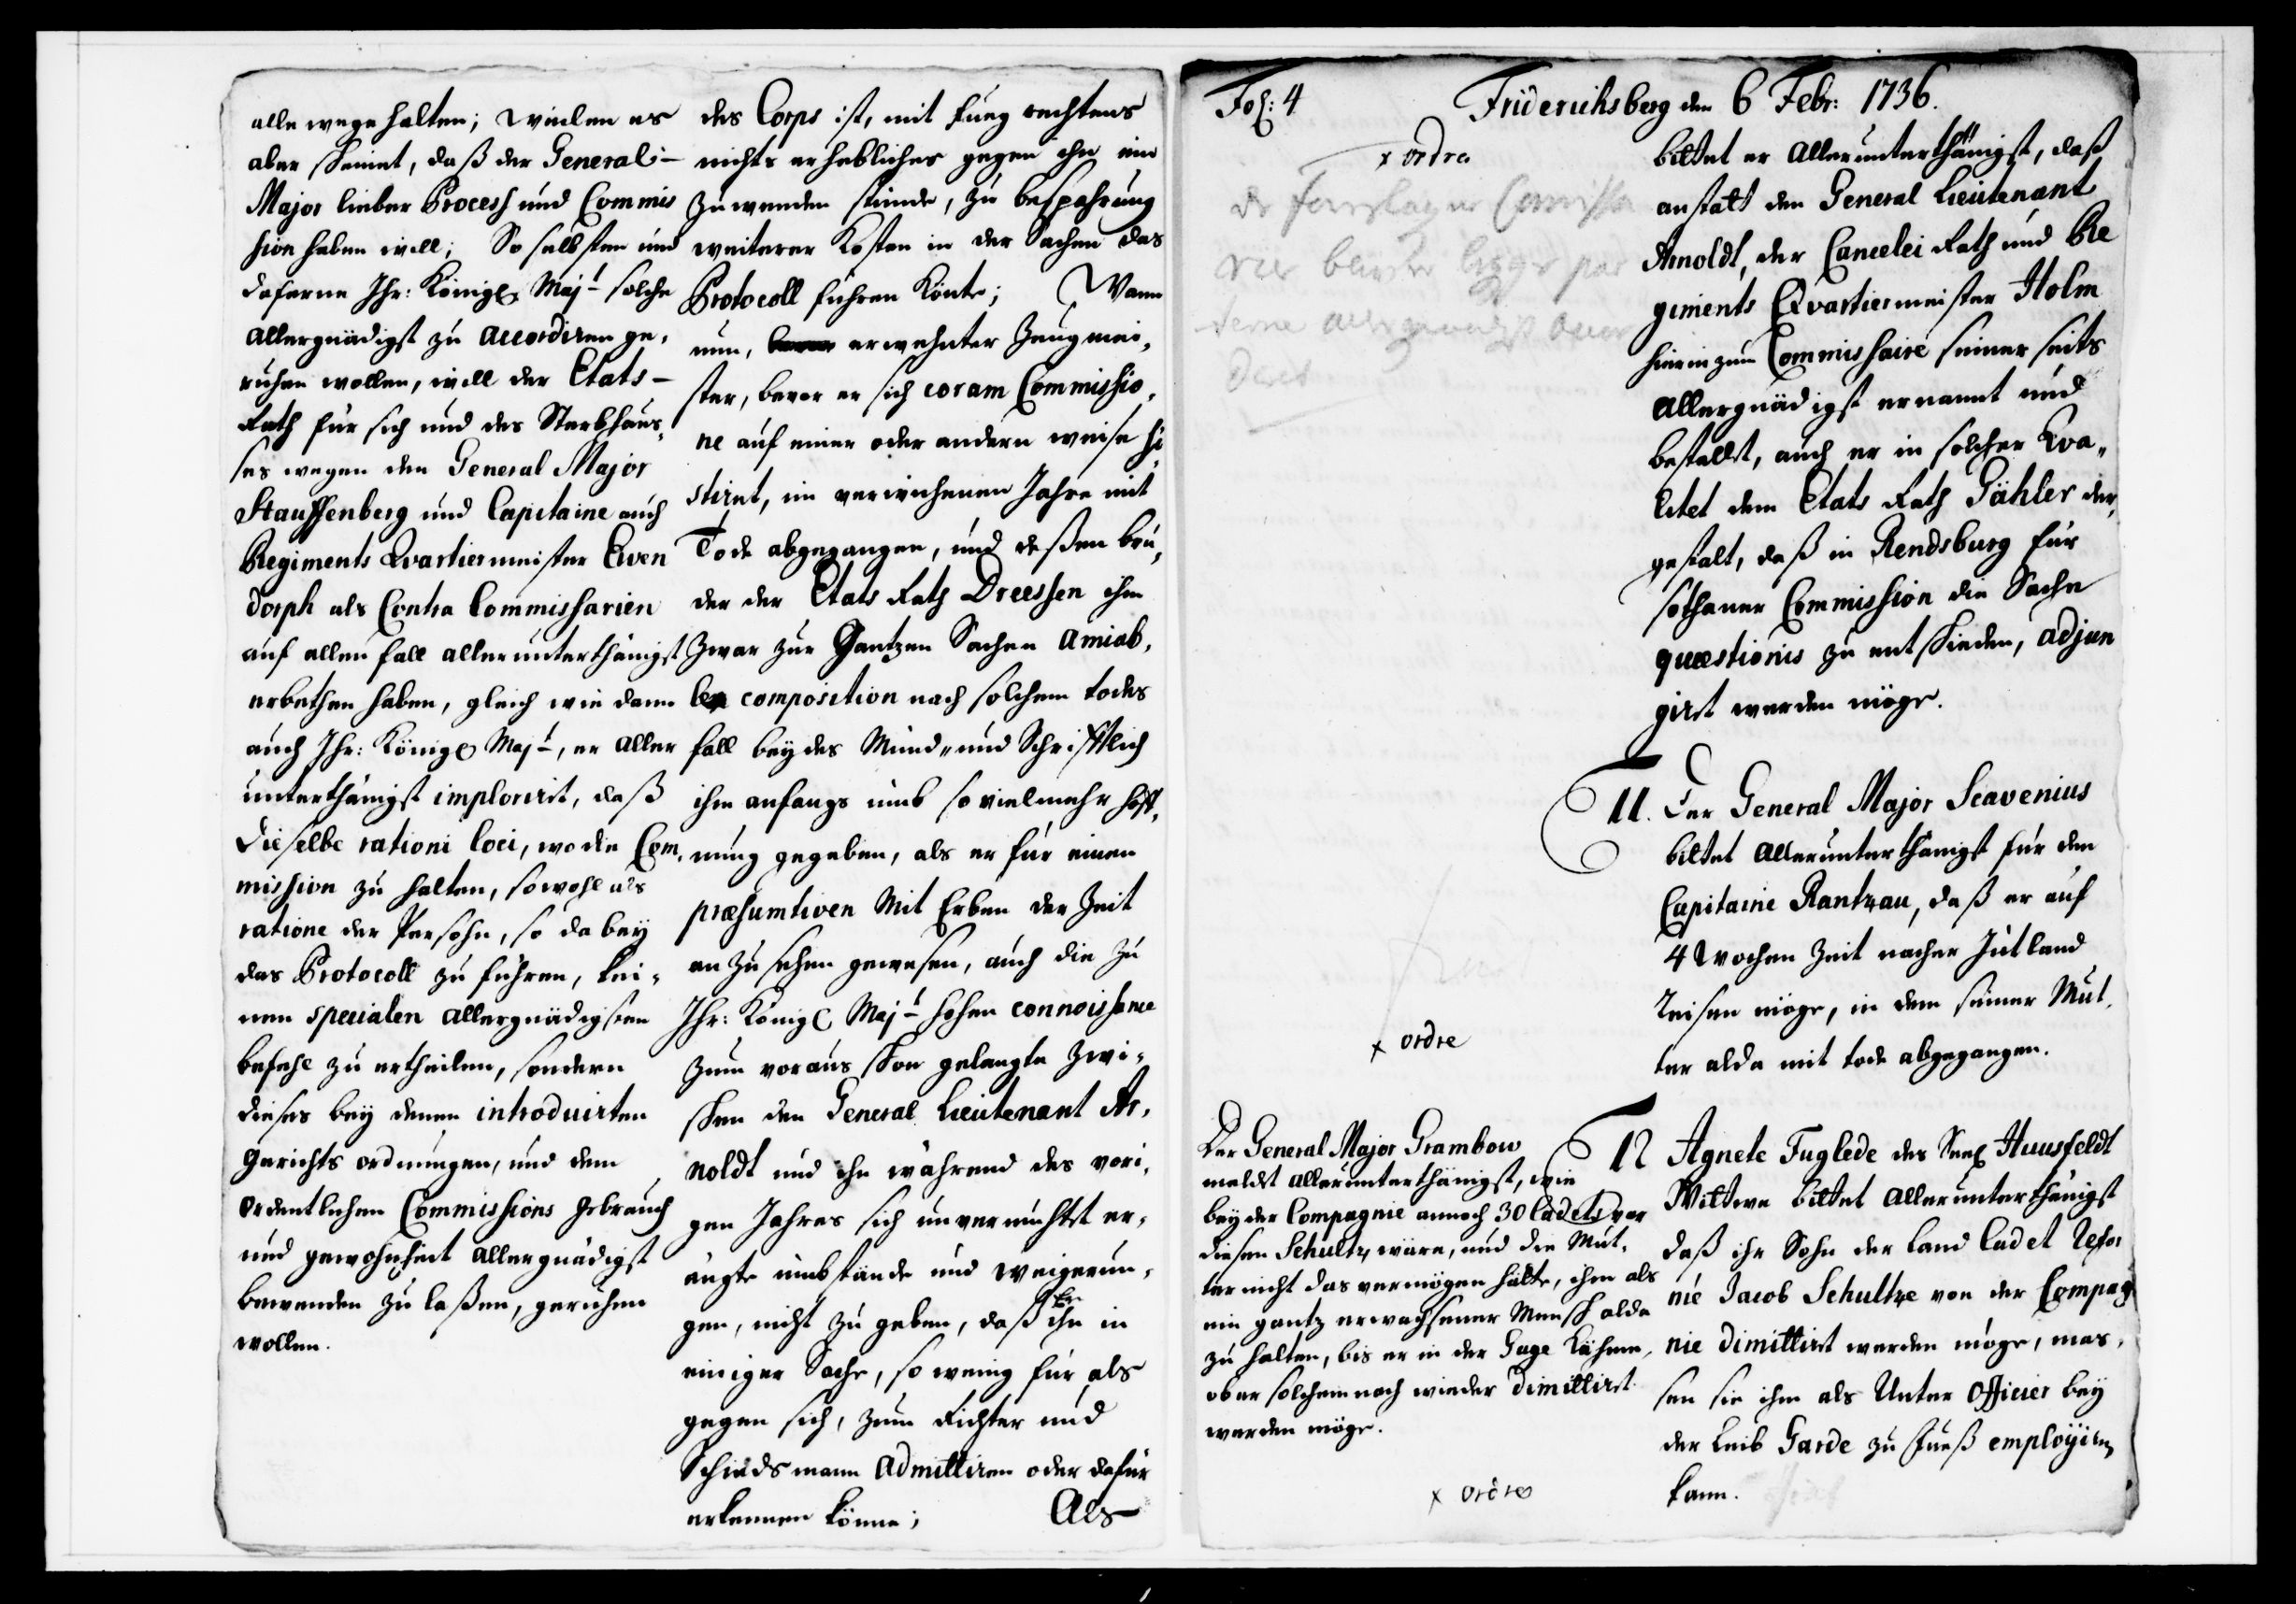 alle wege halten; Weilen es
aber scheinet, daß der General-
Major lieber Process und Commis
sion haben will; So selbsten und
daferne Ihr: Königl Maj:t solche
Allergnädigst zu Accordiren ge,
ruhen wollen, will der Etats-
Rath für sich und des Sterbhau,
ses wegen den General Major
Stauffenberg und Capitaine auch
Regiments Qvartiermeister Even
dorph als Contra Commissarien
auf allen fall allerunterthänigst
erbethen haben, gleich wie dann
auch Ihr: Königl Maj:t, er Aller
unterthänigst implorirt, daß
Dieselbe rationi loci, wo die Com,
mission zu halten, sowohl als
ratione der Persohn, so dabey
das Protocoll zu führen, kei-
nen specialen Allergnädigsten
befehl zu ertheilen, sondern
dieses bey denen introduirten
Gerichts ordnungen, und dem
Ordentlichen Commissions gebrauch
und gewohnheit Allergnädigst
bewenden zu laßen, geruhen
wollen.
des Corps ist, mit fueg rechtens
nichts erhebliches gegen ihn ein
zuwenden stünde, zu bespahrung
weiterer Kosten in der Sachen das
Protocoll führen Könte; Wann
nun, erwehnter Zeugmei,
ster, bevor er sich coram Commissio,
ne auf einer oder andern weise si,
stiret, im verwichenen Jahre mit
Tode abgegangen, und deßen bru,
der der Etats Rath Dreessen ihm
Zwar zur Gantzen Sachen Amiab,
len composition nach solchem todes
fall beydes Mund- und Schrifftlich
ihm anfangs umb so vielmehr hoff,
nung gegeben, als er für einen
præsumtiven Mit Erben der Zeit
anzusehen gewesen, auch die zu
Ihr: Königl Maj:t hohen connoissance
zum voraus schon gelangte Zwi-
schen den General Lieutenant Ar,
noldt und ihn während des vori,
gen Jahres sich unvermuhtet er,
äugte umbstände und weigerun,
gen, nicht zu geben, daß er ihn in
einiger Sache, so wenig für als
gegen sich, zum Richter und
Schiedsmann Admittiren oder dafür
erkennen könne; Als
Fol: 4 Friderichsberg den 6 Febr: 1736.
x ordre
de forreslagne Comissa
rier
terne allergnädigst
bittet er Allerunterthänigst, daß
anstatt den General Lieutenant
Arnoldt, der Cancelei Rath und Re
giments Qvartiermeister Holm
hierin zum Commissaire seiner seits
Allergnädigst ernannt und
bestellet, auch er in solcher Qva,,
litet dem Etats Rath Gähler der,
gestalt, daß in Rendsburg für
sothaner Commission die Sache
quæstionis zu entscheiden, adjun
giret werden möge.
11. Der General Major Scavenius
bittet Allerunterthänigst für den
Capitaine Rantzau, daß er auf
4 Wochen Zeit nacher Jütland
reisen möge, in dem seiner Mut,
ter alda mit tode abgegangen.
x ordre
Der General Major Grambow
meldet Allerunterthänigst, wie
bey der Compagnie annoch 30 Cadets vor
diesen Schultz, wäre, und die Mut,
ter nicht das vermögen hätte, ihm als
ein gantz erwachsener Mensch alda
zu halten, bis er in der Gage Kähme,
ob er solchem nach wieder dimittirt
werden möge.
x ordre
12 Agnete Fuglede des Seel Huusfeldt
Wittwe bittet Allerunterthänigst
daß ihr Sohn der Land Cadet Refor
mé Jacob Schultze von der Compag
nie dimittirt werden möge, mas,
sen sie ihm als Unter Officier bey
der Leib Garde zu fueß employiren
kann.